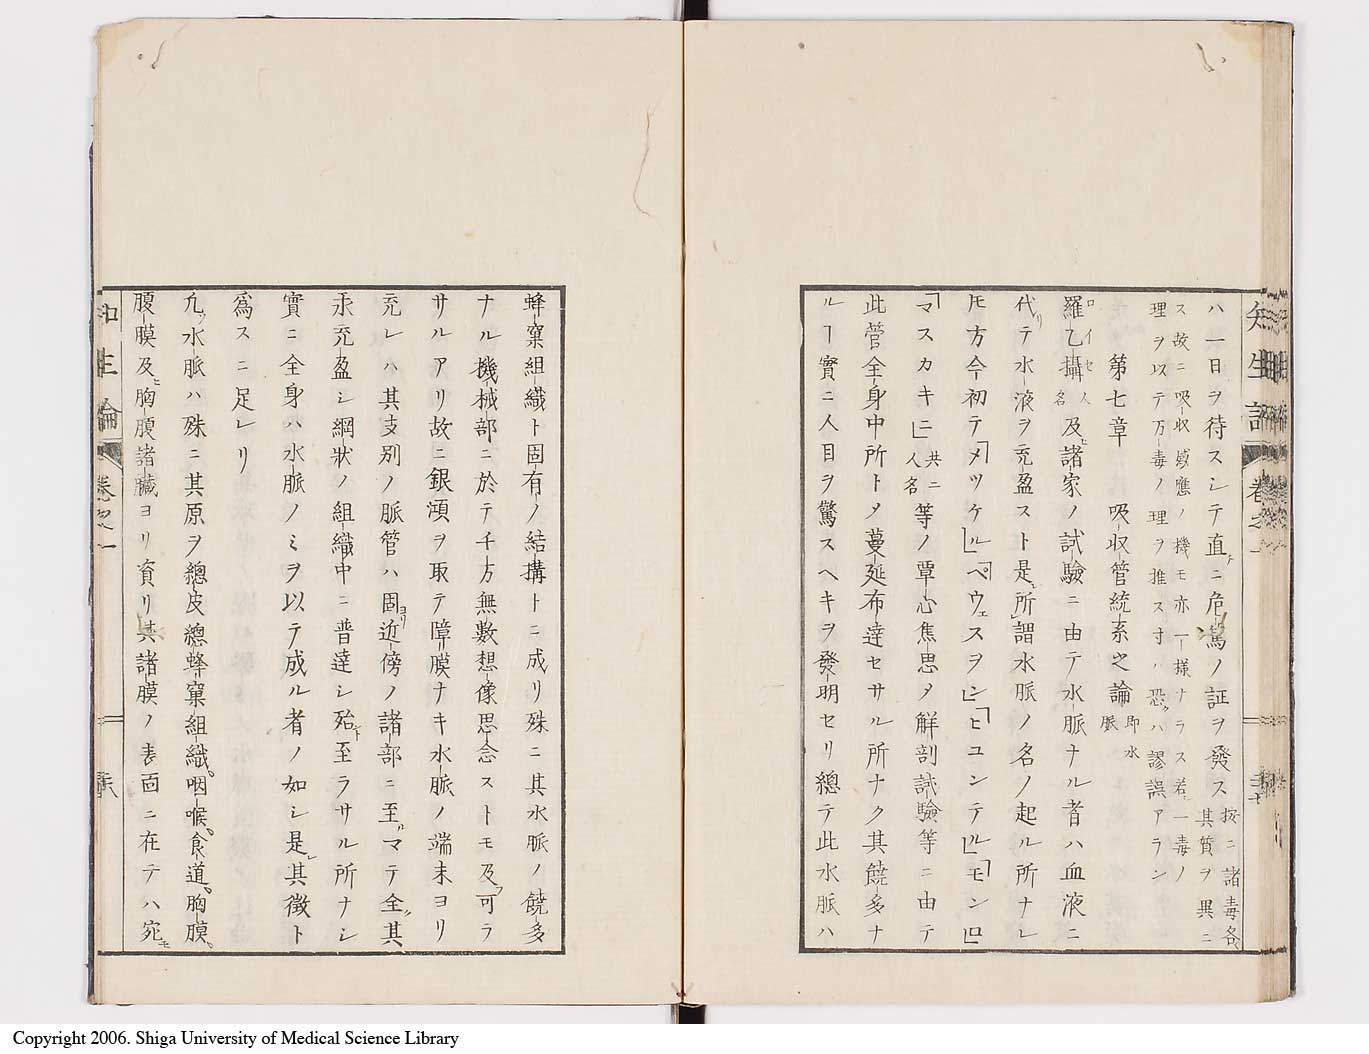 ハ一日ヲ待スシテ直ニ危篤ノ証ヲ發ス按ニ諸毒各其質ヲ異ニ
ス故ニ吸収感應ノ機モ亦一樣ナラス若一毒ノ
理ヲ以テ万毒ノ理ヲ推ス寸ハ恐クハ謬誤アラン
第七章 吸収管統系之論即水脈
羅乙攝人名及諸家ノ試驗ニ由テ水脈ナル者ハ血液ニ
代リテ水液ヲ充盈スト是レ所謂水脈ノ名ノ起ル所ナレ
𪜈方今初テ「メツケル」「ペウェスヲン」「ヒユンテル」「モンロ」
「マスカキニ」共ニ人名等ノ覃心焦思ト觧剖試驗等ニ由テ
此管全身中所トメ蔓延布達セサル所ナク其饒多ナ
ルヿ實ニ人目ヲ驚スヘキヲ發明セリ總テ此水脈ハ
矢生論 卷之一
蜂窠組織ト固有ノ結搆トニ成リ殊ニ其水脈ノ饒多
ナル機械部ニ於テ千方無數想像思念ストモ及フ可ラ
サルアリ故ニ銀澒ヲ取テ障膜ナキ水脈ノ端末ヨリ
充レハ其支別ノ脈管ハ固ヨリ近傍ノ諸部ニ至ルマテ全ク其
汞充盈シ網狀ノ組織中ニ普達シ殆ト至ラサル所ナシ
實ニ全身ハ水脈ノミヲ以テ成ル者ノ如シ是レ其徴ト
爲スニ足レリ
九ソ水脈ハ殊ニ其原ヲ總皮總蜂窠組織咽喉食道胸膜
腹膜及ヒ胸腹諸臓ヨリ資リ其諸膜ノ表面ニ在テハ宛モ
知生論 卷之一